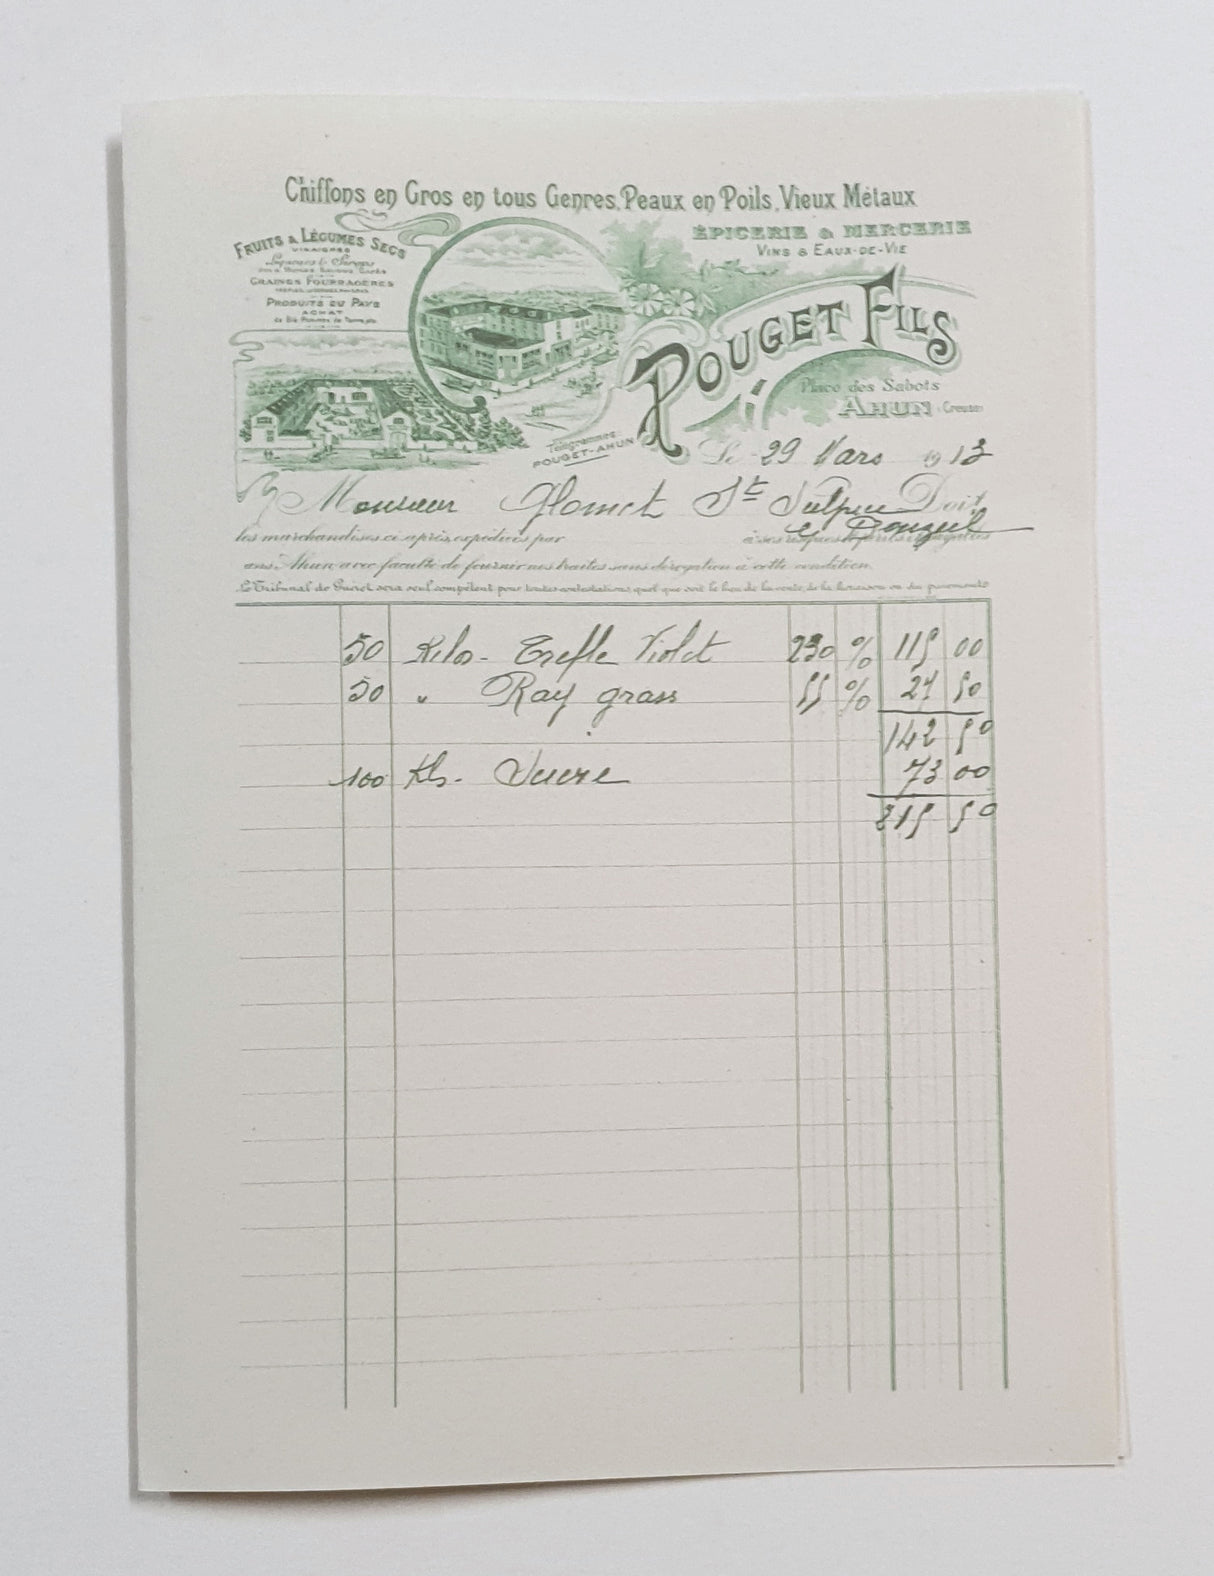 Chiffons en Gros en tous Genres, Peaux en Poils, Vieux Métaux
ÉPICERIE & MERCERIE
VINS & EAUX-DE-VIE
FRUITS & LÉGUMES SECS
VINAIGRES
Liqueurs & Sirops
GRAINES FOURRAGÈRES
PRODUITS DU PAYS
ACHAT
de Blé Pommes de Terre, etc.
POUGET FILS
Place des Sabots
AHUN (Creuse)
Télégrammes:
POUGET-AHUN
Le 29 Mars 1913
Monsieur Glomet St Sulpice Doit
les marchandises ci-après, expédiées par à ses risques
ans Ahun avec faculté de fournir nos traites sans dérogation à cette condition.
Le Tribunal de Guéret sera seul compétent pour toutes contestations quel que soit le lieu de la vente, de la livraison ou du paiement
50 Kilos - Trefle Violet 230 % 115 00
50 " Ray grass 55 % 27 50
142 50
100 Kls - Sucre 73 00
215 50